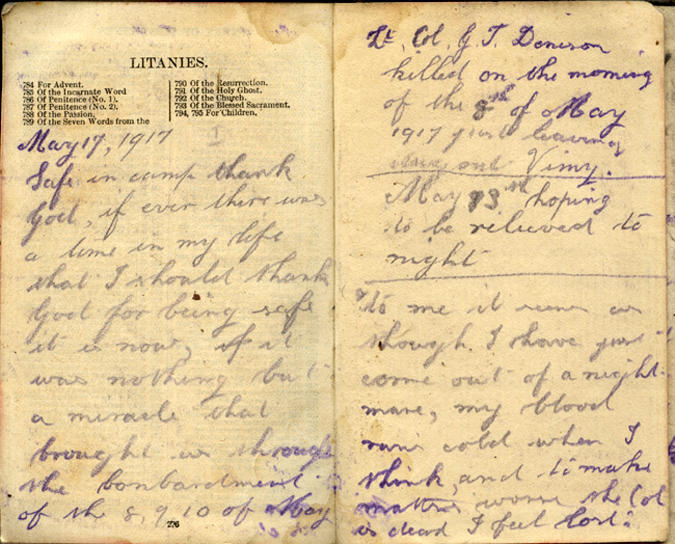 LITANIES.
784 For Advent.
785 Of the Incarnate Word
786 Of Penitence (No. 1).
787 Of Penitence (No. 2).
788 Of the Passion.
789 Of the Seven Words from the
790 Of the Resurrection.
791 Of the Holy Ghost.
792 Of the Church.
793 Of the Blessed Sacrament.
794, 795 For Children.
May 17, 1917
Safe in camp thank
God, if ever there was
a time in my life
that I should thank
God for being safe
it is now, if it
was nothing but
a miracle that
brought us through
the bombardment
of the 8, 9, 10 of May
276
Lt. Col. G. T. Denison
killed on the morning
of the 8th of May
1917 just leaving
Vimy.
May 13th hoping
to be relieved to
night
to me it seems as
though I have just
come out of a night
mare, my blood
runs cold when I
think, and to make
matters worse the Col
is dead I feel lost.